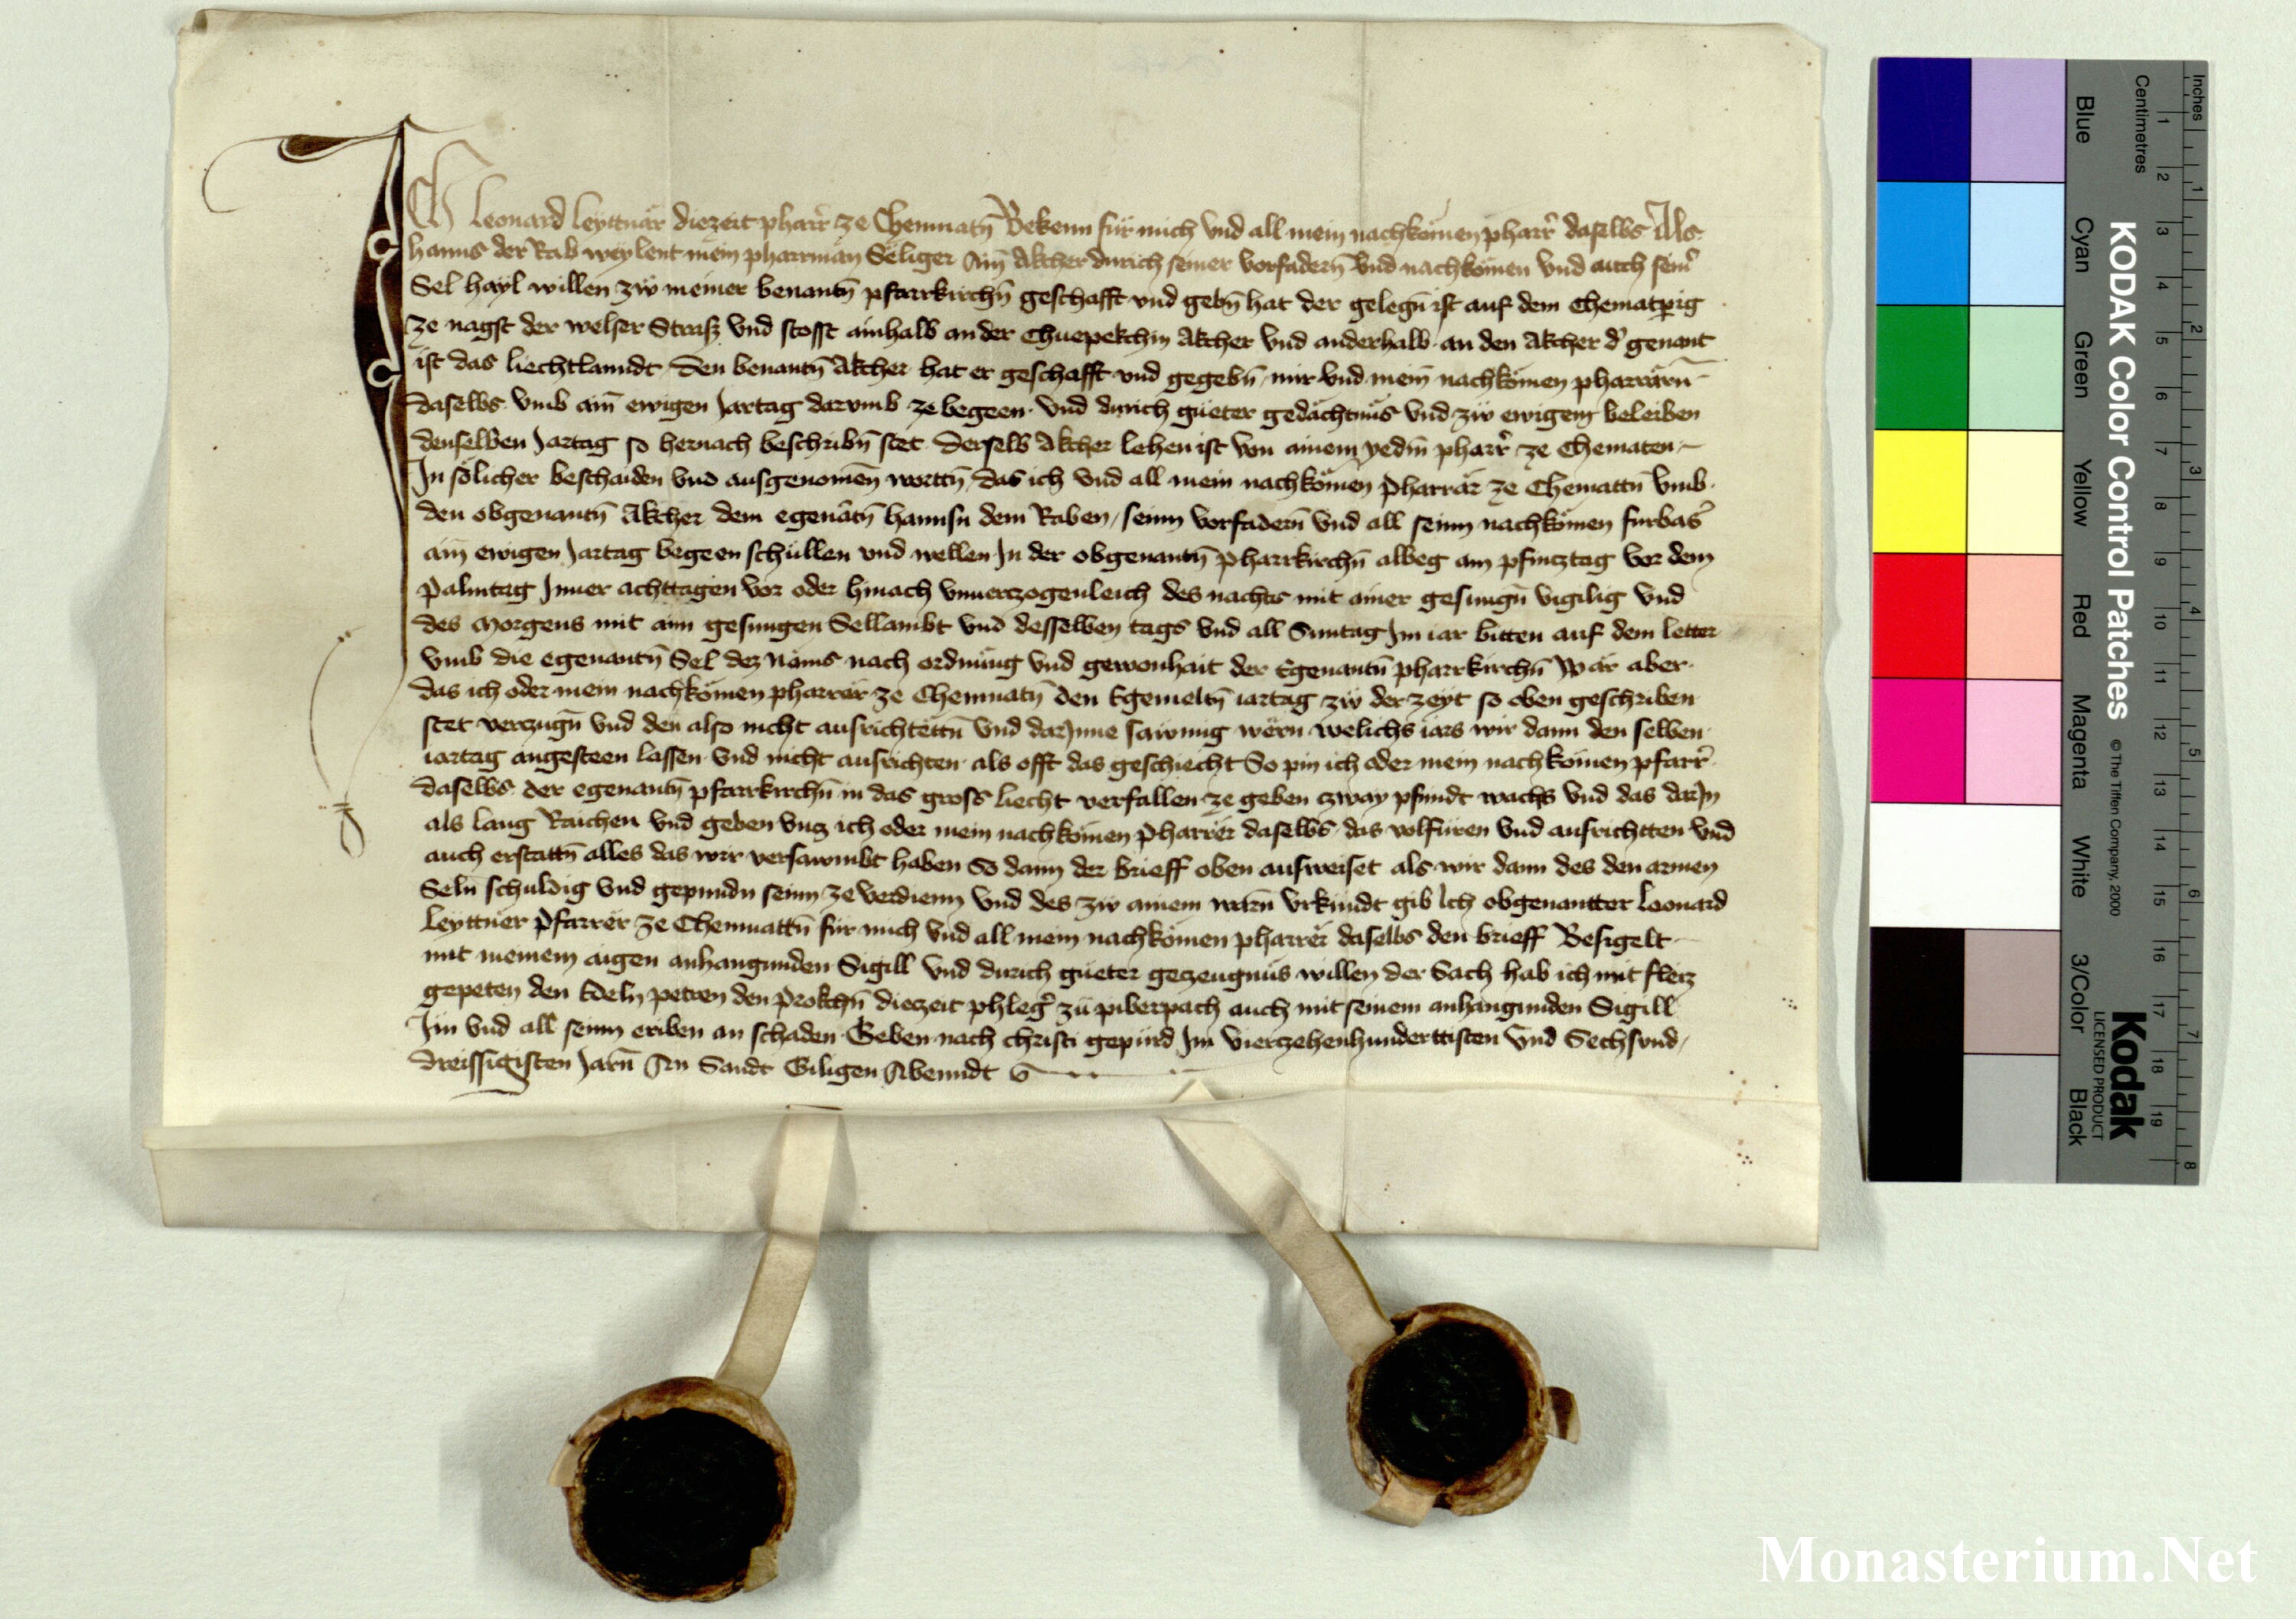 Ich Leonard leyttnär diezeit pharr̄ ze Chemnatn̄ Bekenn für mich vnd all mein nachkömen pharr̄ daselbs Als
hanns der Rab weylent mein pharrman Säliger ain̄ Akcher durich seiner vorfadern̄ vnd nachkömen vnd auch sein̄
Sel hayl willen zw̎ meiner benantn̄ pfarrkirchn̄ geschafft vnd gebn̄ hat der gelegn̄ ist auf dem Chematperig
ze nagst der welser Strasz vnd stosst ainhalb an der Chuepekchin Akcher vnd anderhalb an den Akcher d' genant
ist das liechtlanndt Den benantn̄ Akcher hat er geschafft vnd gegebn̄ mir vnd mein̄ nachkömen pharrärn̄
daselbs vmb ain̄ ewigen Jartag darvmb ze begeen vnd durich güeter gedächtnüs vnd zw̎ ewigem beleiben
denselben Jartag so hernach beschribn̄ stet Derselb Akcher lehen ist von ainem yedm̄ pharr̄ ze Chematen
In sölicher beschaiden vnd ausgenomen̄ worttn̄ das ich vnd all mein nachkömen Pharrär ze Chemattn̄ vmb
den obgenantn̄ Akcher dem egenātn̄ hannsn dem Raben / seinn vorfadern̄ vnd all seinn nachkömen furbas
ain̄ ewigen Jartag begeen schüllen vnd wellen In der obgenantn̄ Pharrkirchn̄ albeg am pfincztag vor dem
Palmtag Inner achttagen vor oder hinach vnuerczogenleich des nachts mit ainer gesungn̄ vigilig vnd
des Morgens mit ainn gesungen Sellambt vnd desselben tags vnd all Suntag Im iar bitten auf dem letter
vmb die egenantn̄ Sel dez Näms nach ordnüng vnd gewonhait der Egenantn̄ pharrkirchn̄ Wär aber
das ich oder mein nachkömen pharrär ze Chemnatn̄ den Egemeltn̄ iartag zw̎ der zeyt so oben geschriben
stet verzugn̄ vnd den also nicht ausrichtettn̄ vnd darInne sawmig wërn welichs iars wir dann den selben
iartag angesteen lassen vnd nicht ausrichten als offt das geschiecht So pin ich oder mein nachkömen pfarr̄
daselbs der egenantn̄ pfarrkirchn̄ in das gross liecht verfallen ze geben czway pfundt wachs vnd das darIn
als lang Raichen vnd geben vncz ich oder mein nachkömen Pharrër daselbs das volfüren vnd ausrichtten vnd
auch erstattn̄ alles das wir versawmbt haben So dann der brieff oben ausweiset als wir dann des den armen
Seln̄ schuldig vnd gepundn seinn ze verdienn vnd des zw̎ ainem warn̄ vrkündt gib Ich obgenantter Leonard
Leyttner Pfarrër ze Chemnattn̄ für mich vnd all mein nachkömen pharrër daselbs den brieff Besigelt
mit meinem aigen anhangunden Sigill vnd durich güeter geczeugnüs willen der Sach hab ich mit fleiz
gepeten den Edeln petren den Prokchn̄ diezeit phleg' zü piberpach auch mit seinem anhangunden Sigill
Im vnd all seinn eriben an schaden Geben nach christi gepürd Im vierzehenhunderttisten vnd Sechsvnd /
dreissigisten Jarn̄ An Sandt Giligen Abenndt
Inches
Centimetres
KODAK Color Control Patches
© The Tiffen Company, 2000
Kodak
LICENSED PRODUCT
Blue
Cyan
Green
Yellow
Red
Magenta
White
3/Color
Black
1 2 3 4 5 6 7 8 9 10 11 12 13 14 15 16 17 18 19
1 2 3 4 5 6 7 8
Monasterium.Net